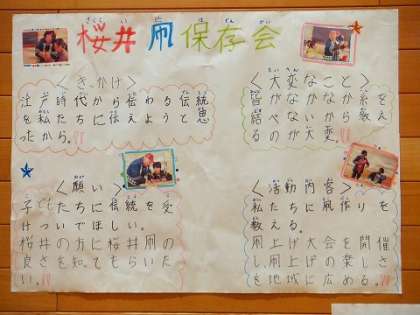 さくらい　だこ　ほぞんかい
桜井凧保存会
＜きっかけ＞
江戸時代から伝わる伝統
を私たちに伝えようと思
ったから。
＜大変なこと＞
皆がなかなか糸数をえ
＜願い＞
子どもたちに伝統を受
けついでほしい。
桜井の方に桜井凧の
良さを知てもらいた
い。
＜活動内容＞
私たちに凧作りを
教える。
凧上げ大会を開催
し凧上げの楽しさ
を地域に広める。